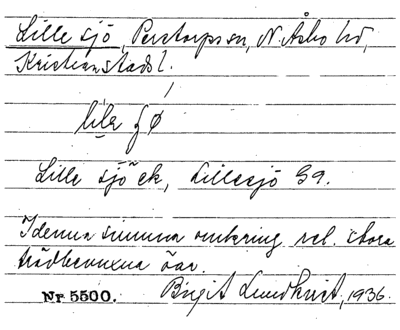 Lille sjö, Perstorps sn, N. Åsbo hd,
Kristianstads l.
lila ʃø
Lille sjö ek, Lillesjö Gg.
I denna simma omkring vel. stora
trädbevuxna öar.
Nr 5500. Birgit Lundkvist, 1936.